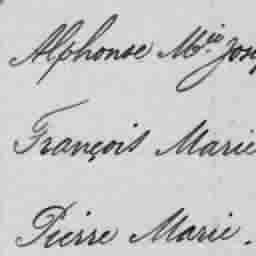 Alphonse Mie Jos
François Marie
Pierre Marie.